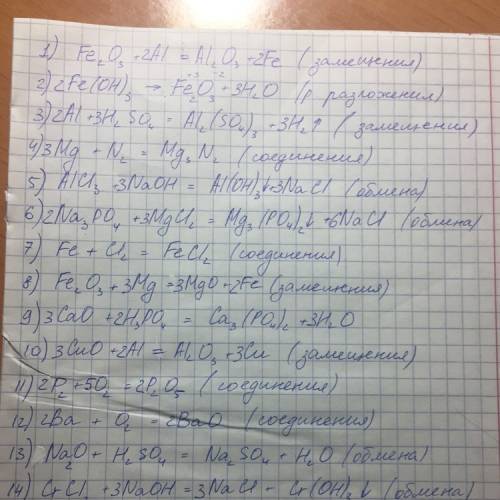 1) Fe₂O₃ + 2Al = Al₂O₃ + 2Fe (замещения)
2) 2Fe(OH)₃ → Fe₂⁺³O₃⁻² + 3H₂O (р. разложения)
3) 2Al + 3H₂SO₄ = Al₂(SO₄)₃ + 3H₂↑ (замещения)
4) 3Mg + N₂ = Mg₃N₂ (соединения)
5) AlCl₃ + 3NaOH = Al(OH)₃↓ + 3NaCl (обмена)
6) 2Na₃PO₄ + 3MgCl₂ = Mg₃(PO₄)₂↓ + 6NaCl (обмена)
7) Fe + Cl₂ = FeCl₂ (соединения)
8) Fe₂O₃ + 3Mg = 3MgO + 2Fe (замещения)
9) 3CaO + 2H₃PO₄ = Ca₃(PO₄)₂ + 3H₂O
10) 3CuO + 2Al = Al₂O₃ + 3Cu (замещения)
11) 2P₂ + 5O₂ = 2P₂O₅ (соединения)
12) 2Ba + O₂ = 2BaO (соединения)
13) Na₂O + H₂SO₄ = Na₂SO₄ + H₂O (обмена)
14) CrCl₃ + 3NaOH = 3NaCl - Cr(OH)₃↓ (обмена)